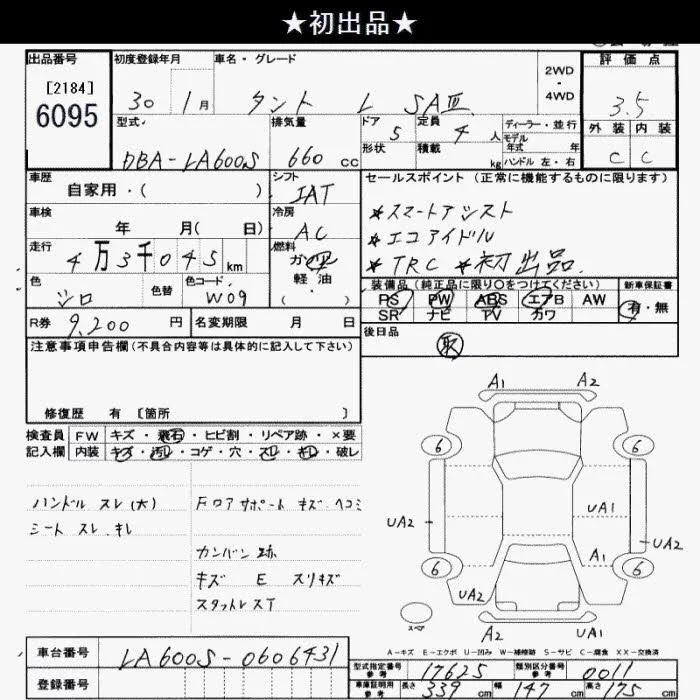 ★初出品★
出品番号
[2184]
6095
初度登録年月
30 1月
車名・グレード
タント L SAⅢ
2WD
・
4WD
評価点
3.5
外装 内装
C C
型式
DBA-LA600S
排気量
660 cc
ドア 5
形状
定員 4 人
積載 kg
ディーラー・並行
モデル年式 年
ハンドル 左・右
車歴
自家用・( )
シフト
IAT
車検
年 月( 日)
冷房
AC
走行
4万3千045km
燃料
ガソ
軽・油
( ・ )
色
シロ
色替
色コード
W09
R券 9,200 円
名変期限 月 日
セールスポイント(正常に機能するものに限ります)
*スマートアシスト
*エコアイドル
*TRC *初出品.
装備品(純正品に限り○をつけてください)
PS PW ABS エアB AW
SR ナビ TV カワ
新車保証書
有・無
後日品
取
注意事項申告欄(不具合内容等は具体的に記入して下さい)
修復歴 有 [箇所 ]
検査員記入欄
FW キズ・飛石・ヒビ割・リペア跡・×要
内装 キズ・汚レ・コゲ・穴・スレ・キレ・破レ
ハンドル スレ(大)
シート スレ キレ
Fロアサポート キズ ヘコミ
カンバン跡
キズ E スリキズ
スタットレスT
A1 A2
6 6
UA2 UA1
UA2
A1
6 6
UA2
スペア
A2 UA1
A-キズ E-エクボ U-凹み W-補修跡 S-サビ C-腐食 XX-交換済
車台番号 LA600S-0606431
登録番号
型式指定番号 参考 17625
類別区分番号 参考 0011
車庫証明用 参考 長さ 339 cm 幅 147 cm 高さ 175 cm